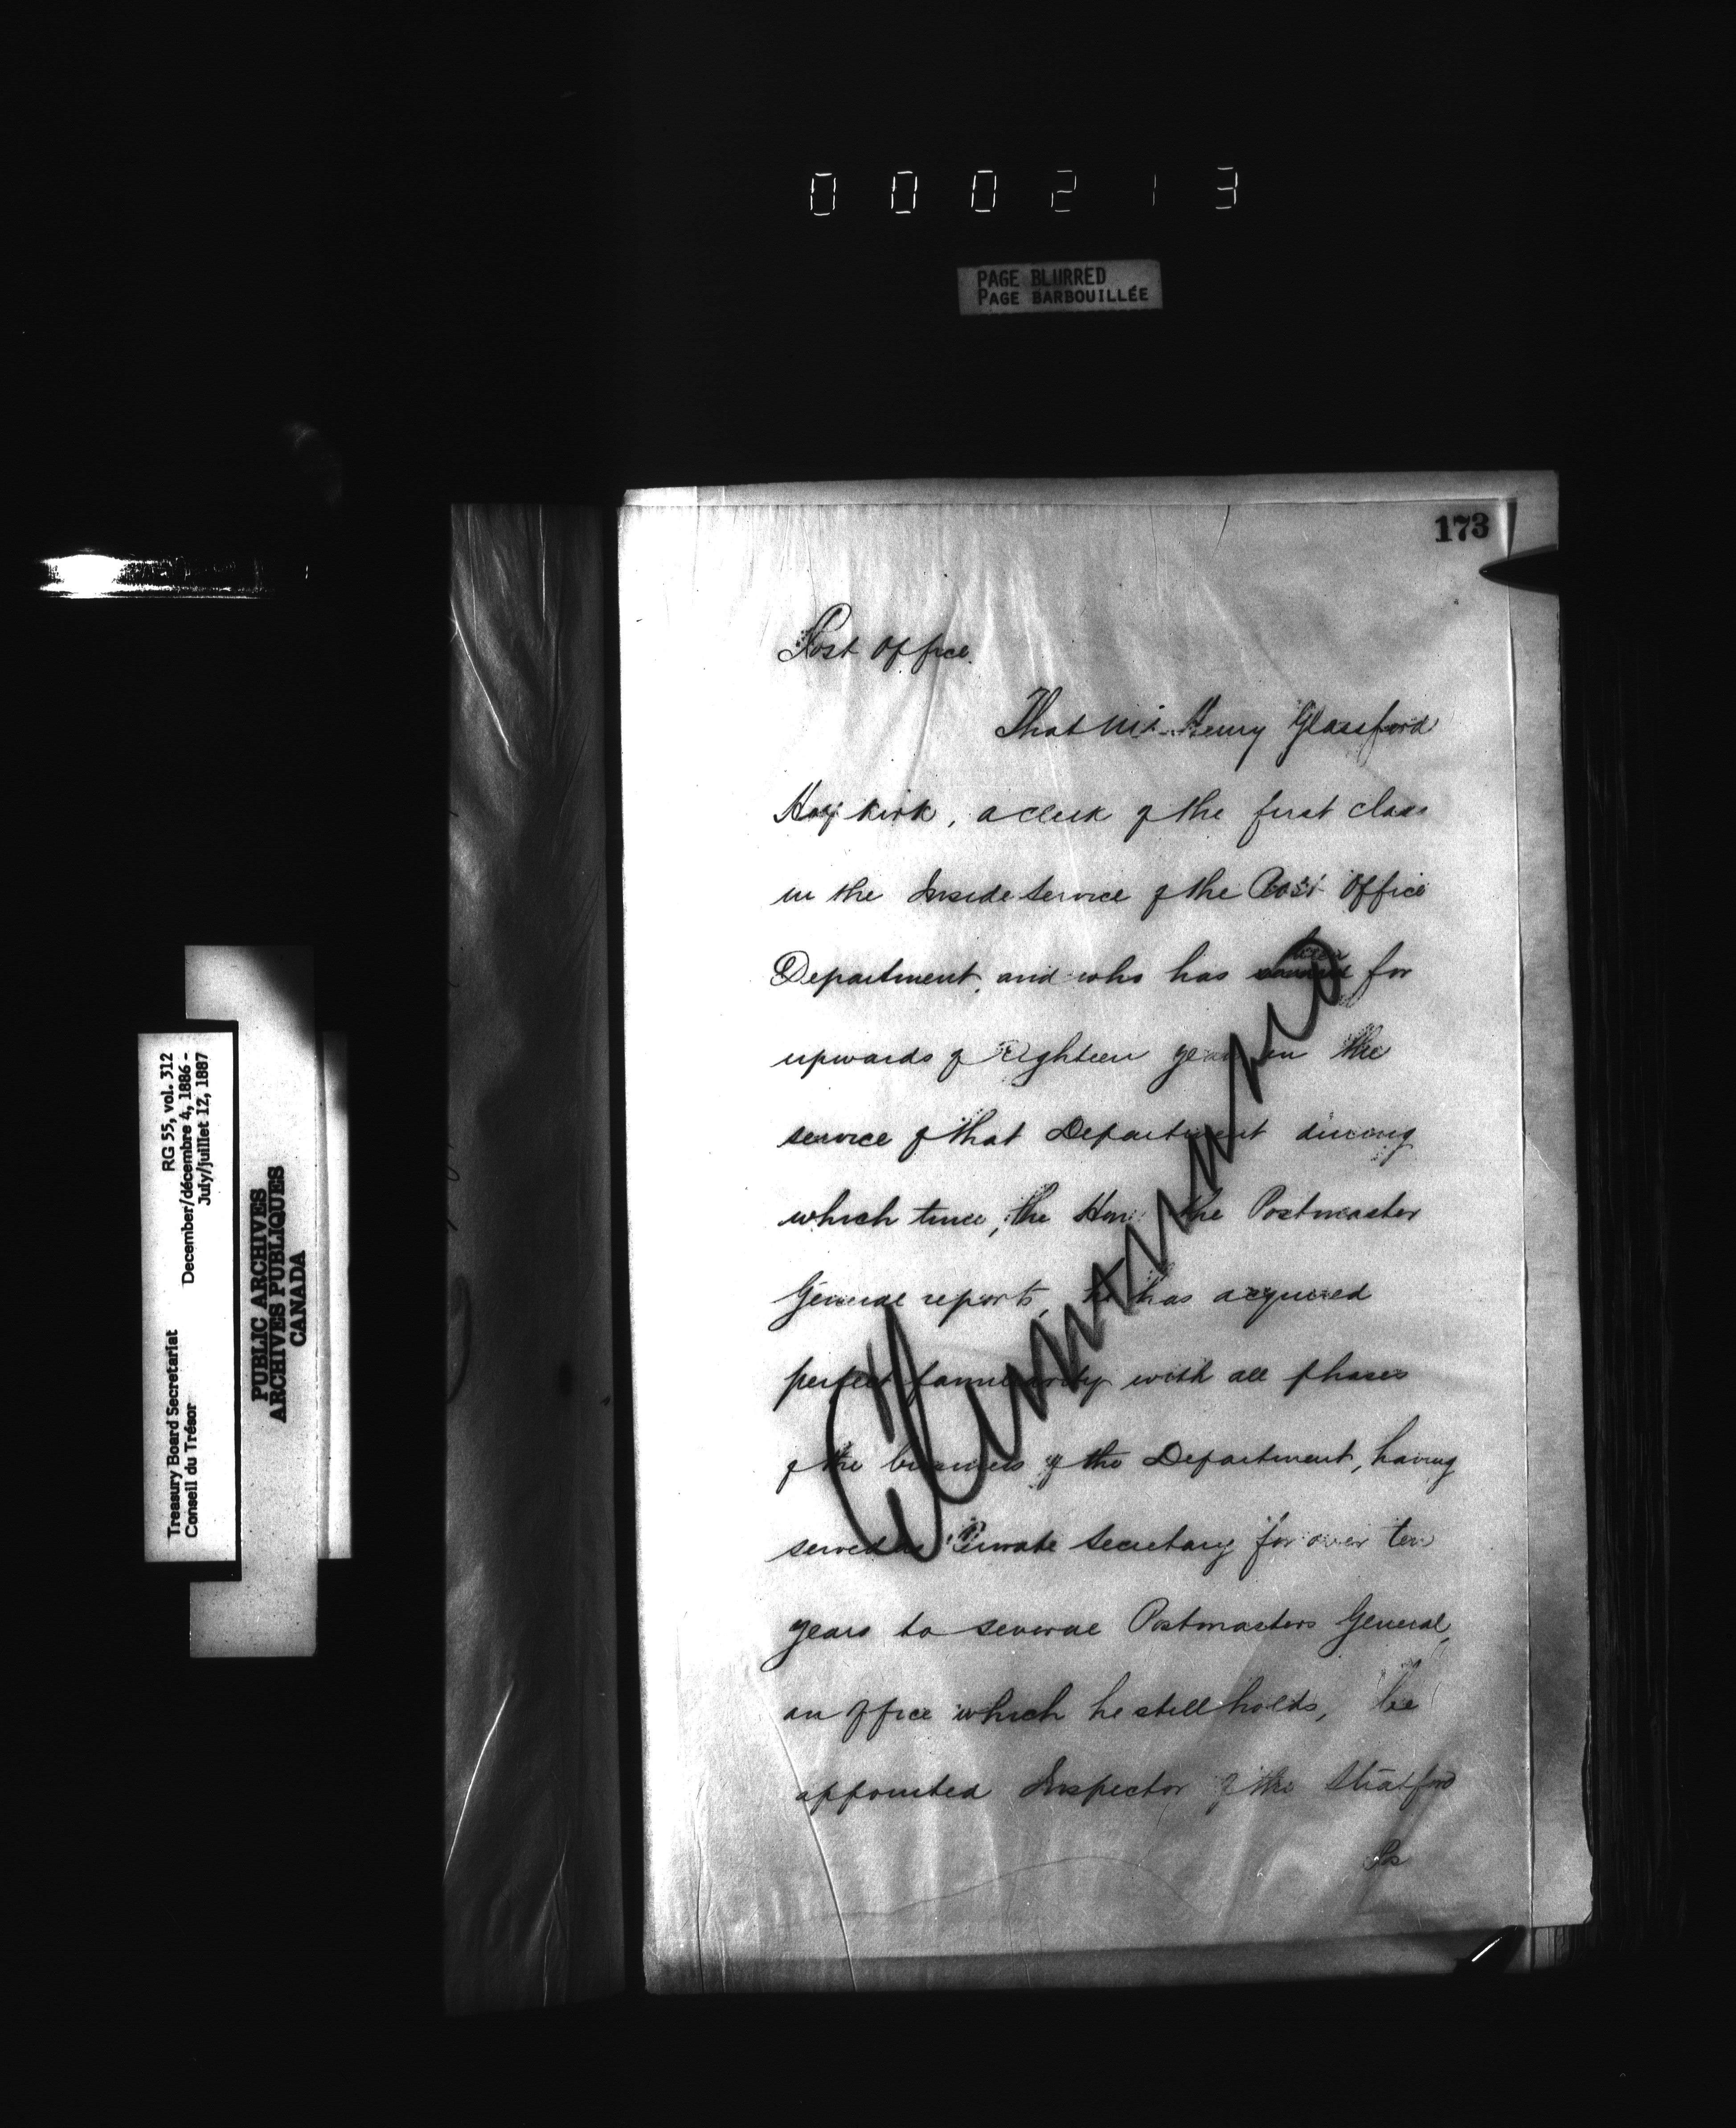 000213
PAGE BLURRED
PAGE BARBOUILLÉE
173
Post Office.
That Mr. Henry Glassford
Hopkirk, a clerk of the first class
in the Inside Service of the Post Office
Department, and who has been for
upwards of Eighteen years in the
service of that Department during
which time, the Hon: the Postmaster
General reports, he has acquired
perfect familiarity with all phases
of the business of the Department, having
served as Private Secretary for over ten
years to several Postmasters General,
an office which he still holds, be
appointed Inspector of the Stratford
Po
Treasury Board Secretariat
Conseil du Trésor
RG 55, vol. 312
December/décembre 4, 1886 -
July/juillet 12, 1887
PUBLIC ARCHIVES
ARCHIVES PUBLIQUES
CANADA